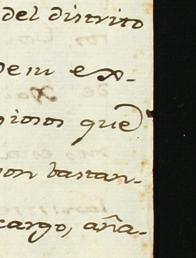 del distrito
dem ex-
giosos que
con bastan-
cargo, aña-